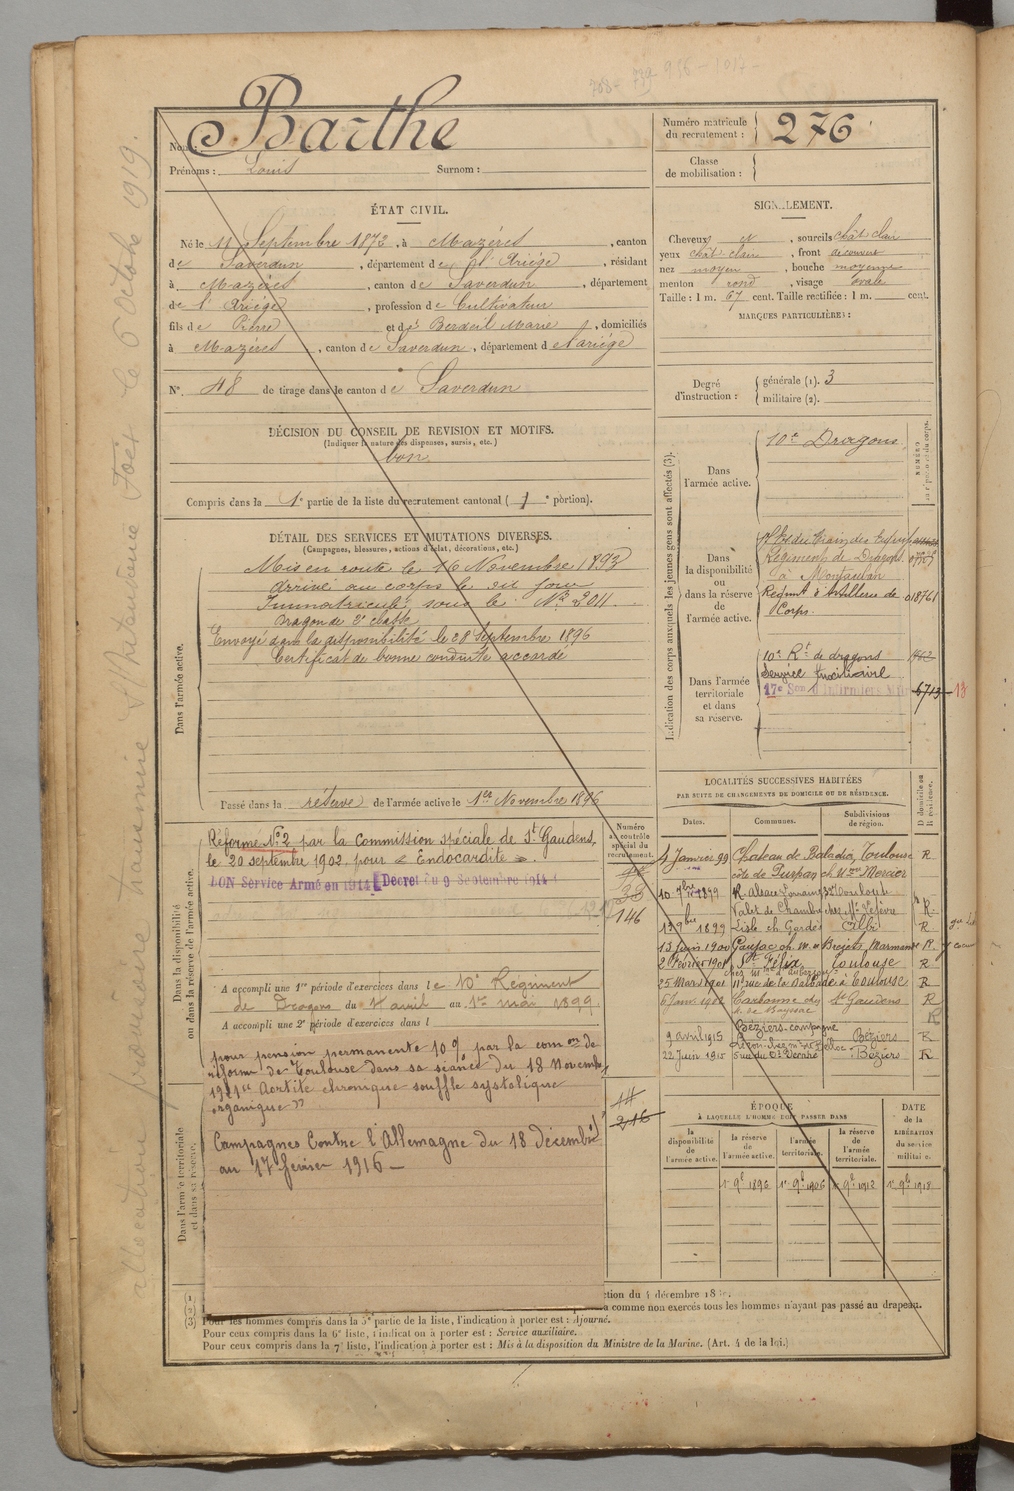 708- 739 956-1017-
Nom: Barthe
Prénoms: Louis Surnom:
Numéro matricule du recrutement: 276
Classe de mobilisation:
ÉTAT CIVIL.
Né le 11 Septembre 1873, à Mazères, canton
de Saverdun, département de l'Ariége, résidant
à Mazères, canton de Saverdun, département
de l'Ariége, profession de Cultivateur
fils de Pierre et de Berdeil Marie, domiciliés
à Mazères, canton de Saverdun, département de l'ariége
N°. 48 de tirage dans le canton de Saverdun
SIGNALEMENT.
Cheveux et, sourcils chât clair
yeux chât clair, front découvert
nez moyen, bouche moyenne
menton rond, visage ovale
Taille: 1 m. 67 cent. Taille rectifiée: 1 m. cent.
MARQUES PARTICULIÈRES:
Degré d'instruction: générale (1). 3
militaire (2).
DÉCISION DU CONSEIL DE REVISION ET MOTIFS.
(Indiquer la nature des dispenses, sursis, etc.)
bon
Compris dans la 1e partie de la liste du recrutement cantonal ( 1 e portion).
DÉTAIL DES SERVICES ET MUTATIONS DIVERSES.
(Campagnes, blessures, actions d'éclat, décorations, etc.)
Dans l'armée active.
Mis en route le 16 Novembre 1893
arrivé au corps le dit jour
Immatriculé sous le N° 2011
Dragon de 2e classe
Envoyé dans la disponibilité le 28 Septembre 1896
Certificat de bonne conduite accordé
Passé dans la réserve de l'armée active le 1er Novembre 1896
Indication des corps auxquels les jeunes gens sont affectés (3).
NUMÉRO
Dans l'armée active.
10e Dragons
Dans la disponibilité ou dans la réserve de l'armée active.
Régiment de Dragons
à Montauban
Régimt d'Artillerie de 018761
Corps.
Dans l'armée territoriale et dans sa réserve.
10e Rt de dragons 1862
Service Auxiliaire
17e Son d'Infirmiers Mres 6713 - 13
LOCALITÉS SUCCESSIVES HABITÉES
PAR SUITE DE CHANGEMENTS DE DOMICILE OU DE RÉSIDENCE.
D domicile ou R résidence.
Dates. Communes. Subdivisions de région.
4 Janvier 99 Chateau de Toulouse R
côte de Purpan ch Mme Mercier
10 7bre 1899 R. Alsace Lorraine 32 Toulouse
Valet de Chambre chez Mr Lefèvre R.
1899 Lisle ch. Albi R
13 Juin 1900 Gaujac ch. m. Marmande R.
2 Février 1901 Ste Félix Toulouse R
25 Mars 1901 11 rue de la Dalbade à Toulouse R
6 Janv. 1902 Carbonne St Gaudens R
R
9 avril 1915 Béziers-campagne Béziers R
22 Juin 1915 5 rue du Béziers R
Dans la disponibilité ou dans la réserve de l'armée active.
Numéro au contrôle spécial du recrutement.
38
146
Réformé N° 2 par la Commission spéciale de St Gaudens,
le 20 septembre 1902 pour « Endocardite ».
BON Service Armé en 1914 Décret du 9 Septembre 1914
A accompli une 1re période d'exercices dans le 10e Régiment
de Dragons du 4 avril au 1er mai 1899
A accompli une 2e période d'exercices dans l
pour pension permanente 10% par la comon de
réforme de Toulouse dans sa séance du 18 Novembre
1921 " Aortite chronique souffle systolique
organique "
Campagnes Contre l'Allemagne du 18 décembre
au 17 février 1916 -
Dans l'armée territoriale et dans sa réserve.
ÉPOQUE
À LAQUELLE L'HOMME DOIT PASSER DANS
la disponibilité de l'armée active. la réserve de l'armée active. l'armée territoriale. la réserve de l'armée territoriale.
DATE de la LIBÉRATION du service militaire.
1r 9bre 1896 1r 9bre 1906 1r 9bre 1912 1r 9bre 1918
(1)
(2)
ction du 4 décembre 18
comme non exercés tous les hommes n'ayant pas passé au drapeau.
(3) Pour les hommes compris dans la 5e partie de la liste, l'indication à porter est: Ajourné.
Pour ceux compris dans la 6e liste, l'indication à porter est: Service auxiliaire.
Pour ceux compris dans la 7e liste, l'indication à porter est: Mis à la disposition du Ministre de la Marine. (Art. 4 de la loi.)
allocation provisoire transmise l'Intendance Foix le 6 Octobre 1919.